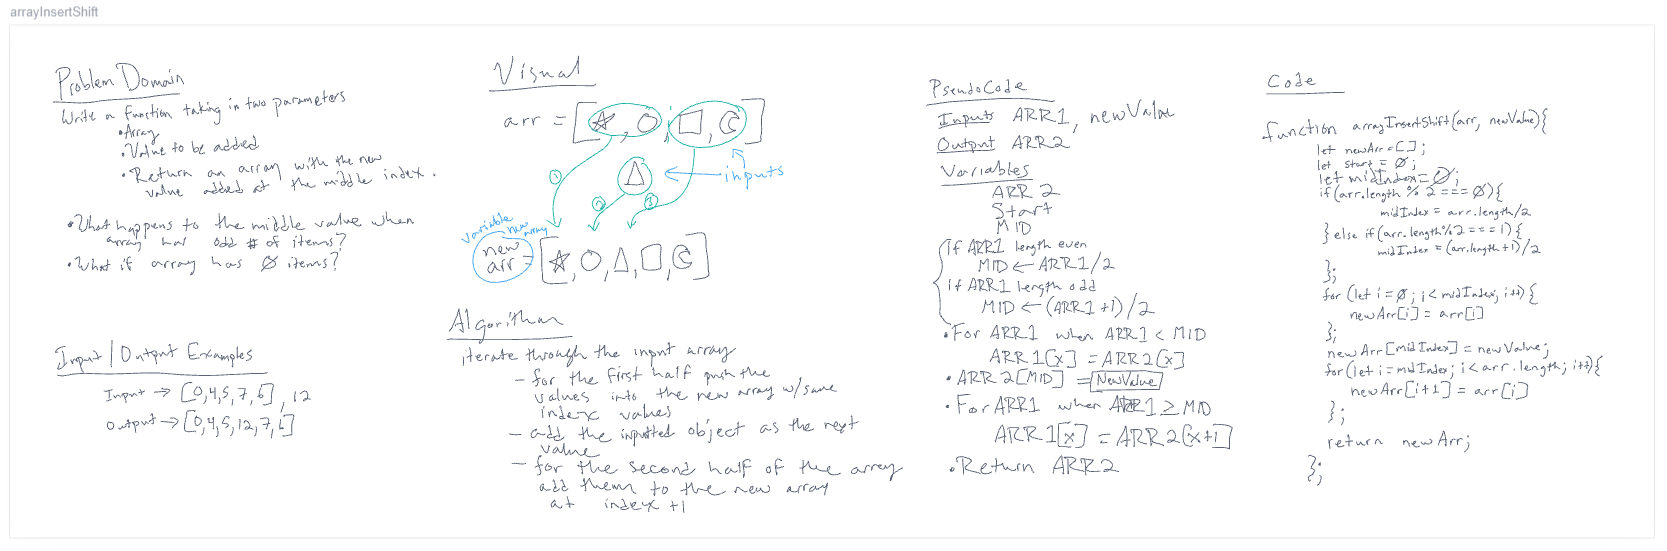 arrayInsertShift
Problem Domain
Write a function taking in two parameters
• Array
• Value to be added
• Return an array with the new
value added at the middle index.
• What happens to the middle value when
array has odd # of items?
• What if array has 0 items?
Input / Output Examples
Input → [0,4,5,7,6], 12
Output → [0,4,5,12,7,6]
Visual
arr = [ , , , ]
inputs
1
2
3
variable new array
new
arr = [ , , , , ]
Algorithm
iterate through the input array
- for the first half push the
values into the new array w/same
index values
- add the inputted object as the next
value
- for the second half of the array
add them to the new array
at index +1
PseudoCode
Inputs ARR1, newValue
Output ARR2
Variables
ARR2
Start
MID
If ARR1 length even
MID ← ARR1/2
if ARR1 length odd
MID ← (ARR1+1)/2
• For ARR1 when ARR1 < MID
ARR1[x] = ARR2[x]
• ARR2[MID] = NewValue
• For ARR1 when ARR1 ≥ MID
ARR1[x] = ARR2[x+1]
• Return ARR2
Code
function arrayInsertShift(arr, newValue){
let newArr = [];
let start = 0;
let midIndex = 0;
if(arr.length % 2 === 0){
midIndex = arr.length/2
} else if(arr.length%2 === 1){
midIndex = (arr.length+1)/2
};
for (let i=0; i<midIndex; i++){
newArr[i] = arr[i]
};
newArr[midIndex] = newValue;
for(let i=midIndex; i<arr.length; i++){
newArr[i+1] = arr[i]
};
return newArr;
};